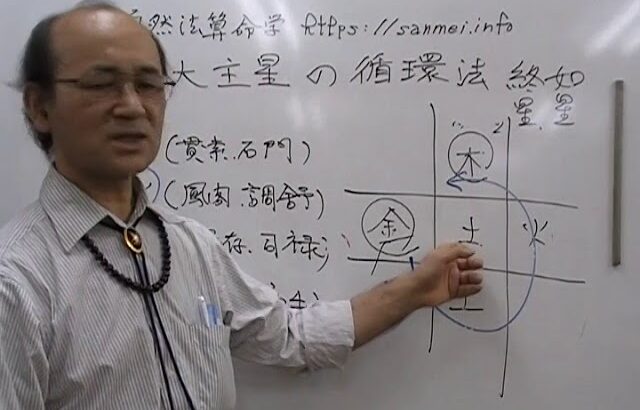 然法算命学 https://sanmei.info
大主星の循環法 終如
星、星
(貫索.石門)
(鳳閣.調舒)
存.司禄)
木
金 土 水
土